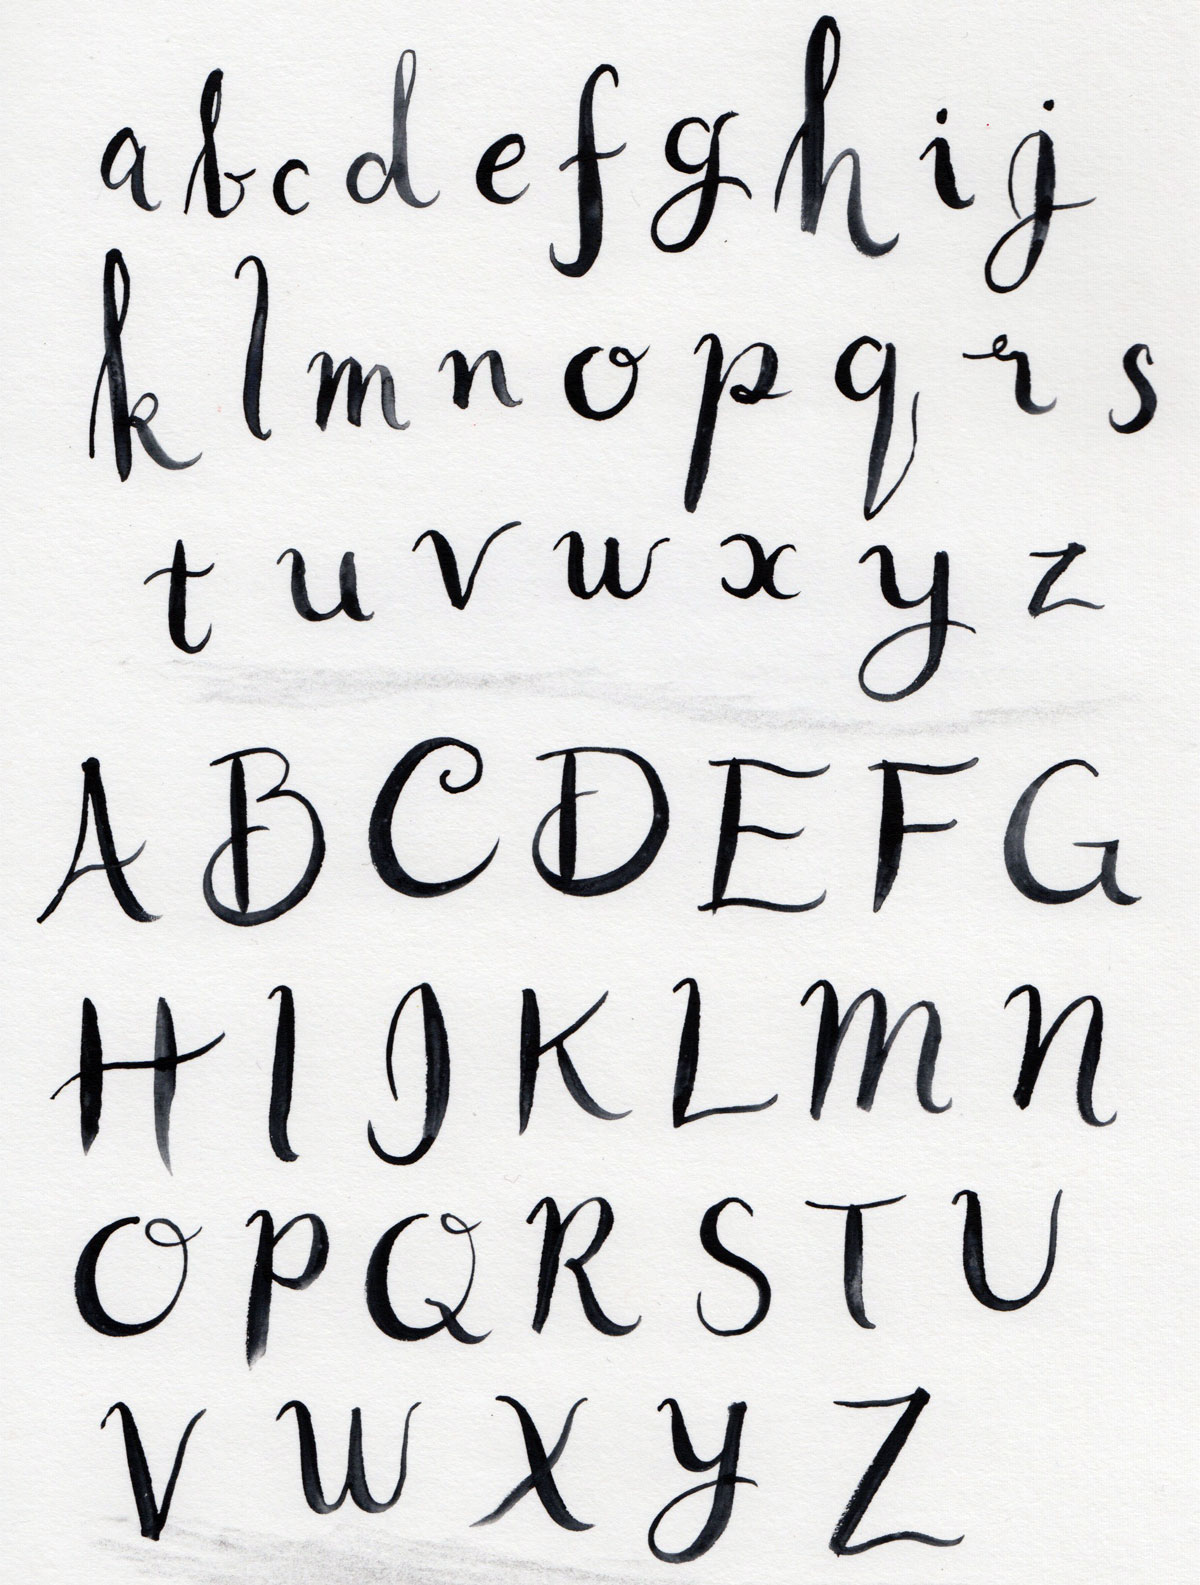 a b c d e f g h i j
k l m n o p q r s
t u v w x y z
A B C D E F G
H I J K L M N
O P Q R S T U
V W X Y Z